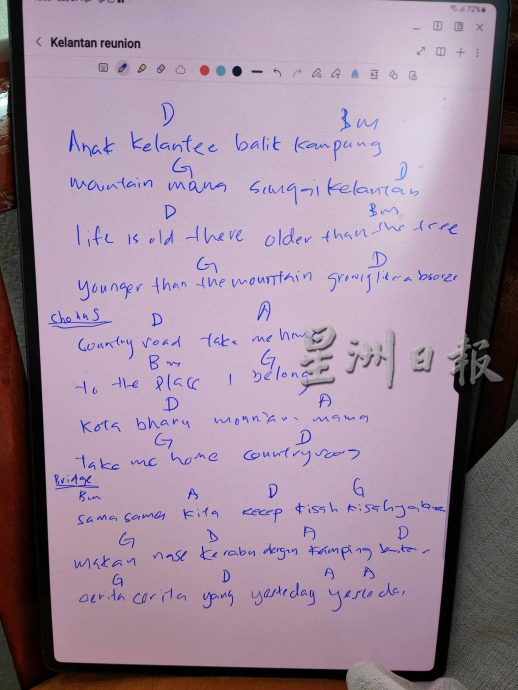 72%
Kelantan reunion
D Bm
Anak Kelantee balik Kampung
G D
mountain mama sungai Kelantan
D Bm
life is old there older than the tree
G D
younger than the mountain growing like a breeze
Chorus D A
Country road take me home
Bm G
to the place I belong
D A
Kota bharu mountain mama
G D
take me home country road
Bridge
Bm A D G
sama sama kita kecep kisah kisahnya
G D A D
makan nase kerabu dengan kamping
G D A A
cerita cerita yang yesteday yesteda
星洲日報